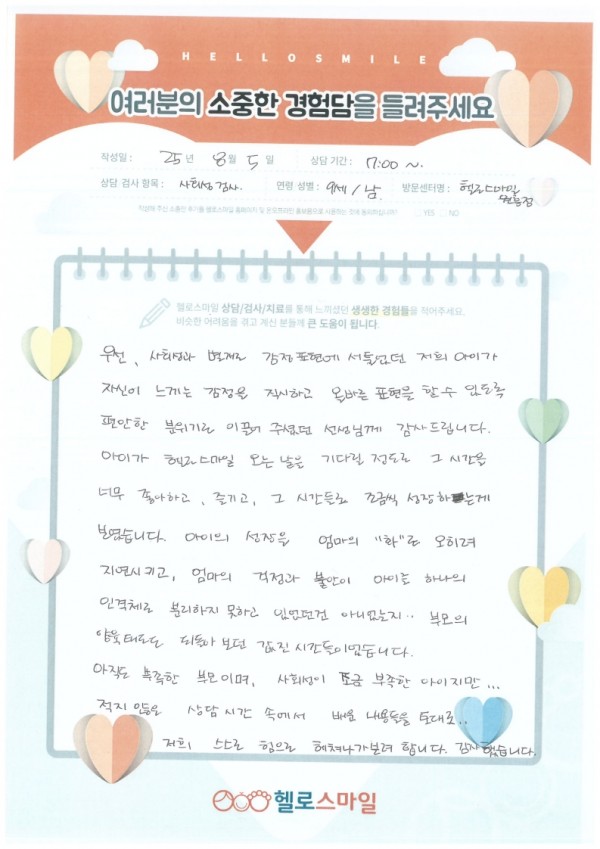 HELLOSMILE
여러분의 소중한 경험담을 들려주세요
작성일 : 25년 8월 5일 상담 기간 : 17:00 ~.
상담·검사 항목 : 사회성 검사. 연령·성별 : 9세 / 남. 방문센터명 : 헬로스마일
작성해 주신 소중한 후기를 헬로스마일 홈페이지 및 온·오프라인 홍보물등으로 사용하는 것에 동의하십니까? YES NO
헬로스마일 상담/검사/치료를 통해 느끼셨던 생생한 경험들을 적어주세요.
비슷한 어려움을 겪고 계신 분들께 큰 도움이 됩니다.
우선, 사회성과 별개로 감정표현에 서툴렀던 저희 아이가
자신이 느끼는 감정을 직시하고 올바른 표현을 할 수 있도록
편안한 분위기로 이끌어 주셨던 선생님께 감사드립니다.
아이가 헬로스마일 오는 날은 기다릴 정도로 그 시간을
너무 좋아하고, 즐기고, 그 시간들로 조금씩 성장하는게
보였습니다. 아이의 성장을 엄마의 "화"로 오히려
지연시키고, 엄마의 걱정과 불안이 아이를 하나의
인격체로 분리하지 못하고 있었던건 아니었는지.. 부모의
양육태도도 되돌아 보던 값진 시간들이었습니다.
아직도 부족한 부모이며, 사회성이 조금 부족한 아이지만...
적지 않은 상담 시간 속에서 배운 내용들을 토대로..
저희 스스로 힘으로 헤쳐나가보려 합니다. 감사했습니다.
헬로스마일